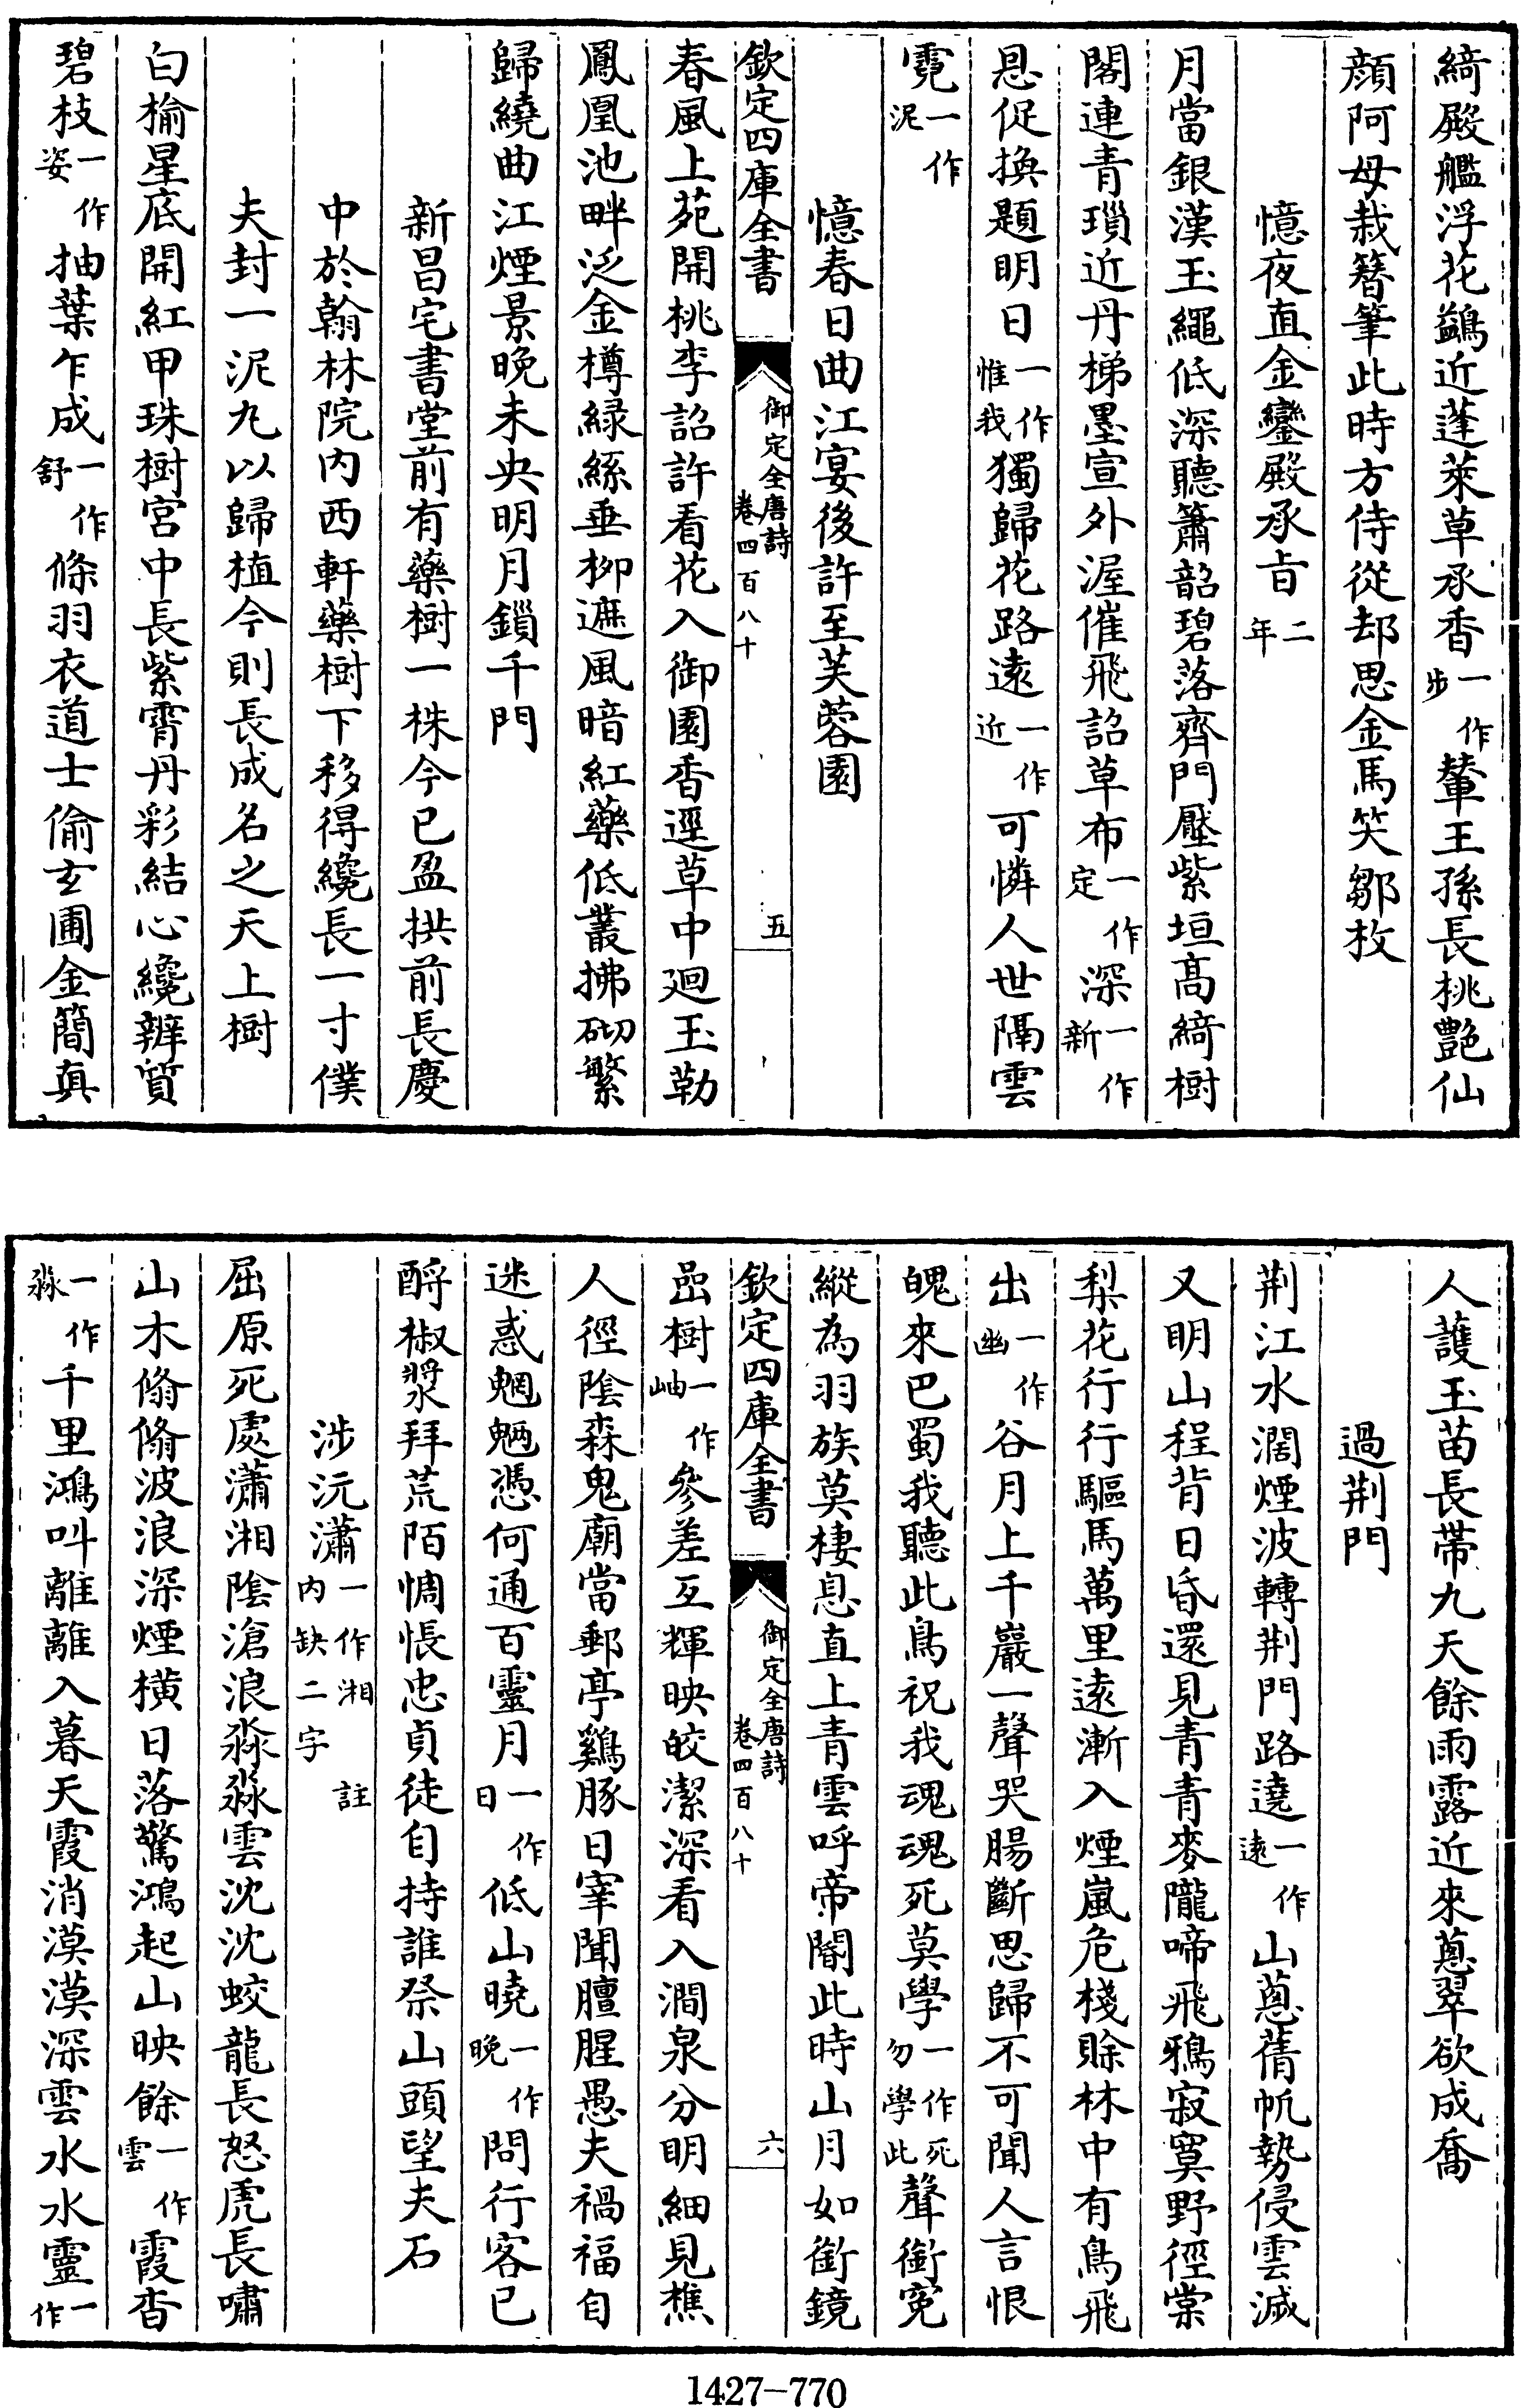 綺殿艦浮花鷁近蓬萊草承香一作步輦王孫長桃艷仙
顔阿母栽簪筆此時方侍從却思金馬笑鄒枚
憶夜直金鑾殿承㫖二年
月當銀漢玉繩低深聽簫韶碧落齊門壓紫垣髙綺樹
閣連青瑣近丹梯墨宣外渥催飛詔草布一作定深一作新
恩促換題明日一作惟我獨歸花路遠一作近可憐人世隔雲
霓一作泥
憶春日曲江宴後許至芙蓉園
欽定四庫全書
御定全唐詩
卷四百八十
五
春風上苑開桃李詔許看花入御園香逕草中廻玉勒
鳳凰池畔泛金樽緑絲垂柳遮風暗紅藥低叢拂砌繁
歸繞曲江煙景晚未央明月鎖千門
新昌宅書堂前有藥樹一株今已盈拱前長慶
中於翰林院内西軒藥樹下移得纔長一寸僕
夫封一泥丸以歸植今則長成名之天上樹
白榆星底開紅甲珠樹宮中長紫霄丹彩結心纔辨質
碧枝一作姿抽葉乍成一作舒條羽衣道士偷玄圃金簡真
人護玉苗長帶九天餘雨露近來蔥翠欲成喬
過荆門
荆江水濶煙波轉荆門路遶一作遠山蔥蒨帆勢侵雲滅
又明山程背日昏還見青青麥隴啼飛鴉寂寞野徑棠
梨花行行驅馬萬里遠漸入煙嵐危棧賒林中有鳥飛
出一作幽谷月上千巖一聲哭腸斷思歸不可聞人言恨
魄來巴蜀我聽此鳥祝我魂魂死莫學一作死勿學此聲銜寃
縱為羽族莫棲息直上青雲呼帝閽此時山月如銜鏡
欽定四庫全書
御定全唐詩
卷四百八十
六
嵒樹一作岫參差互輝映皎潔深看入澗泉分明細見樵
人徑陰森鬼廟當郵亭鷄豚日宰聞膻腥愚夫禍福自
迷惑魍魎憑何通百靈月一作日低山曉一作晚問行客已
酹椒漿拜荒陌惆悵忠貞徒自持誰祭山頭望夫石
涉沅瀟一作湘註内缺二字
屈原死處瀟湘陰滄浪淼淼雲沈沈蛟龍長怒虎長嘯
山木翛翛波浪深煙橫日落驚鴻起山映餘一作雲霞杳
一作淼千里鴻叫離離入暮天霞消漠漠深雲水水靈一作
1427-770